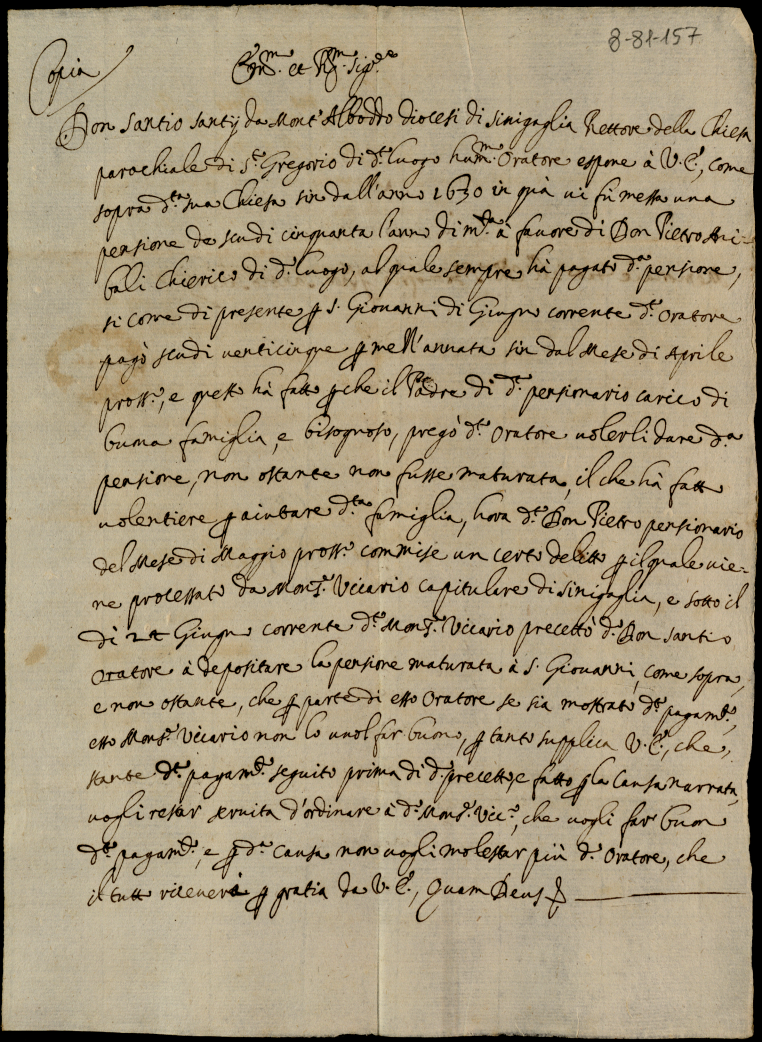 8-81-157
Copia
Em.mo et R.mo Sig.re
Don Santio Santij da Mont'Alboddo diocesi di Sinigaglia Rettore della Chiesa
parochiale di S.to Gregorio di d.o luogo hum.mo Oratore espone à V. E., come
sopra d.ta sua Chiesa sin dall'anno 1630 in quà vi fù messa una
pensione de scudi cinquanta l'anno di m.ta à favore di Don Pietro Ani=
bali Chierico di d.o luogo, al quale sempre hà pagato d.a pensione,
si come di presente p S. Giovanni di Giugno corrente d.o Oratore
pagò scudi venticinque p mezz'annata sin dal Mese di Aprile
pross.o, e questo hà fatto pche il Padre di d.o pensionario carico di
buona famiglia, e bisognoso, pregò d.o Oratore volerli dare d.a
pensione, non ostante non fusse maturata, il che hà fatto
volentiere p aiuttare d.ta famiglia, hora d.o Don Pietro pensionario
del Mese di Maggio pross.o commise un certo delitto p il quale vie=
ne processato da Mons.r Vicario capitulare di Sinigaglia, e sotto il
dì Giugno corrente d.o Mons.r Vicario precettò d.o Don Santio
Oratore à depositare la pensione maturata à S. Giovanni, come sopra,
e non ostante, che p parte di esso Oratore se sia mostrato d.o pagam.to,
esso Mons.r Vicario non lo vuol far buono, p tanto supplica V. E., che,
stante d.o pagam.to seguito prima di d.o precetto, e fatto p la causa narrata,
vogli restar servita d'ordinare à d.o Mons.r Vic.o, che vogli far buon
d.to pagam.to, e p d.a causa non vogli molestar più d.o Oratore, che
il tutto riceverà p gratia da V. E., Quam Deus